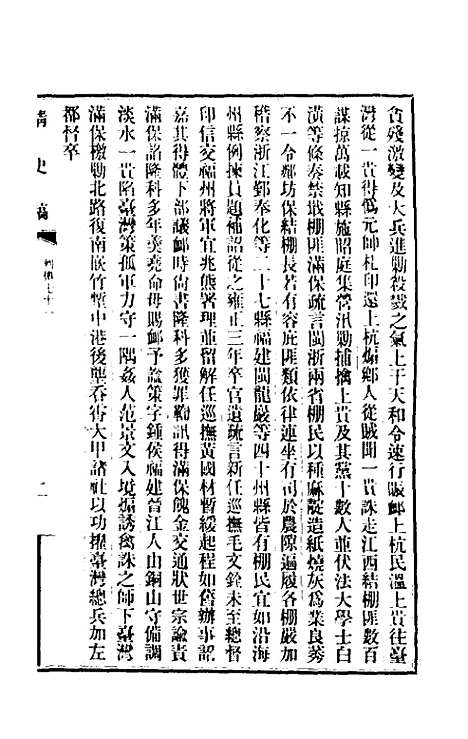 貪殘激變及大兵進勦殺戮之氣上干天和令速行賑卹上杭民溫上貴往臺
灣從一貴得僞元帥札印還上杭煽鄉人從賊聞一貴誅走江西結棚匪數百
謀掠萬載知縣施昭庭集營汛勦捕擒上貴及其黨十數人並伏法大學士白
潢等條奏禁戢棚匪滿保疏言閩浙兩省棚民以種麻靛造紙燒灰爲業良莠
不一令鄰坊保結棚長若有容庇匪類依律連坐有司於農隙遍履各棚嚴加
稽察浙江鄞奉化等二十七縣福建閩龍巖等四十州縣皆有棚民宜如沿海
州縣例揀員題補詔從之雍正三年卒官遺疏言新任巡撫毛文銓未至總督
印信交福州將軍宜兆熊署理並留解任巡撫黃國材暫緩起程如舊辦事詔
嘉其得體下部議卹時尙書隆科多獲罪鞫訊得滿保餽金交通狀世宗諭責
滿保諂隆科多年羹堯命毋賜卹予諡策字鍾侯福建晉江人由銅山守備調
淡水一貴陷臺灣策孤軍力守一隅姦人范景文入境煽誘禽誅之師下臺灣
滿保檄勦北路復南嵌竹塹中港後壟吞霄大甲諸社以功擢臺灣總兵加左
都督卒
淸史稿
列傳七十一
二